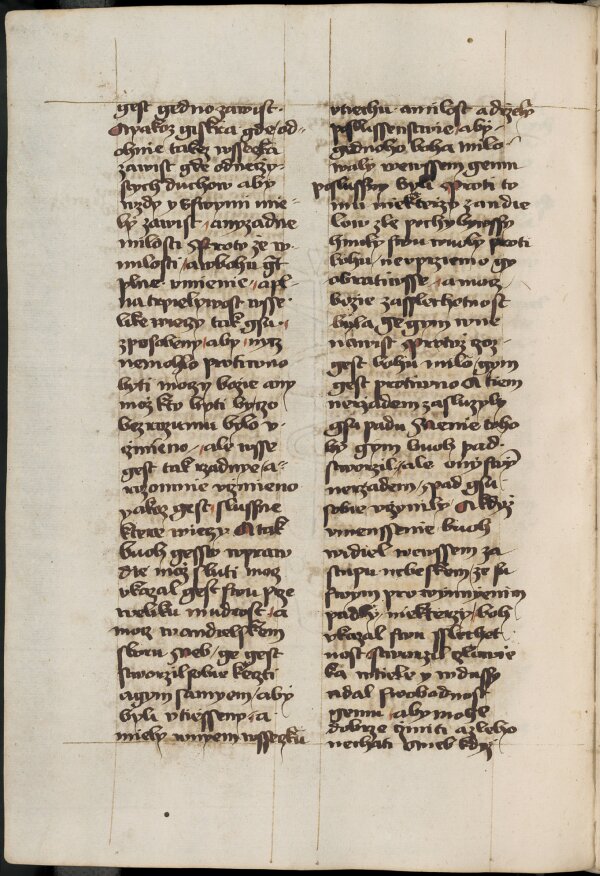 gest gedno zawist·
A yakoz giskra gde od-
ohnie takez wssecka
zawist gde od neczy-
stych duchow aby
nzdy y vstwynu nie-
by zawist / any zadne
milosti Proto ze w-
milosti / a w bohu gt
plne vmienie / a pl-
na trpieliwost wsse·
like wieczy tak gsu·
zposobeny / aby nycz
nemohlo protiwno
byti moczy bozie any
moz kto byti by czo
bez rozumu bylo v-
czinieno / ale wsse
gest tak rzadnye / a-
rozomnie vczinieno
yakoz gest slussne
ktere wieczy A tak
buoh gessto w praw
die moz sluti moz
vkazal gest swu prze
weliku mudrost / a
moz w andielskem
sboru Neb / ge gest
stworzil sobie ke czti
a gym samyem / aby
byli vtiesseny / a
miely w nyem wssecku
vtiechu· a milost a drzely
poslussenstwie / aby-
gednoho boha milo-
waly we wssem gemu
poslussny byli Proti to
mu niekterzy zandie
low zle pochybiwssy
hnuly swu wuoly proti
bohu / neuprziemo gy
obratiwsse / a moz
bozie zasslechetnost
byla ge gym w ne
nawist Protoz czoz-
gest bohu milo / gym
gest protiwno A tiem
nerzadem zasluzyly
gsu padu Nenie toho
by gym buoh pad·
stworzil / ale ony swym
nerzadem / zpad gsu
sobie vczynily A kdyz
vmenssenie buoh
widiel we wssem za
stupu nebeskem / ze su
swym prowynnyenim
padly / niekterzy / boh
vkazal swu sslechet
nost stworzil czlowie
ka w tiele y w dussy
a dal swobodnost
gemu / aby mohl
dobrze cziniti a zleho
nechati Vneb kdyz